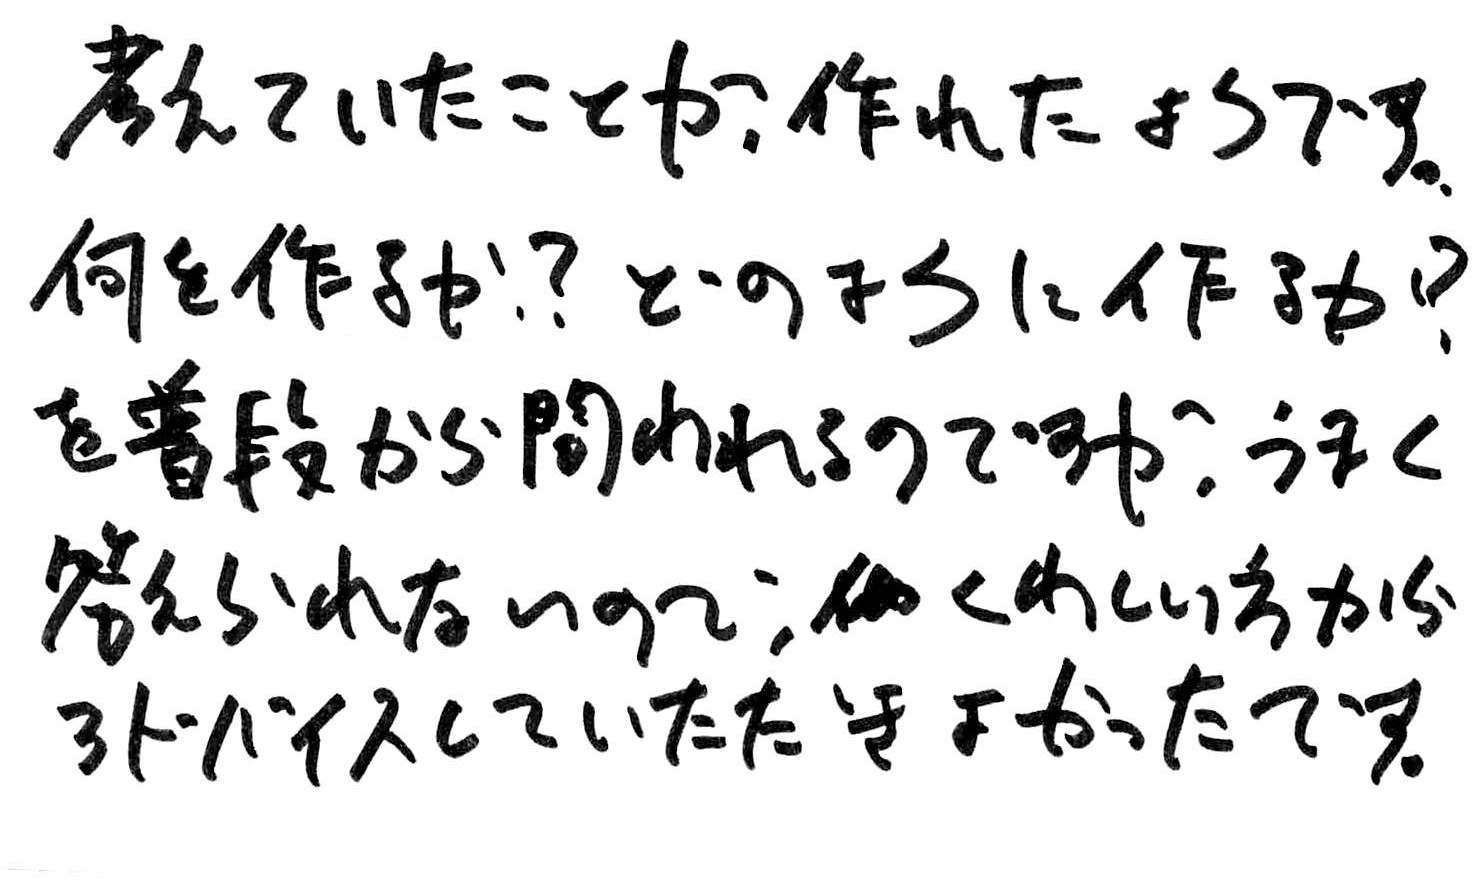 考えていたことが、作れたようです。
何を作るか？どのように作るか？
を普段から問われるのですが、うまく
答えられないので、くわしい方から
アドバイスしていただきよかったです。